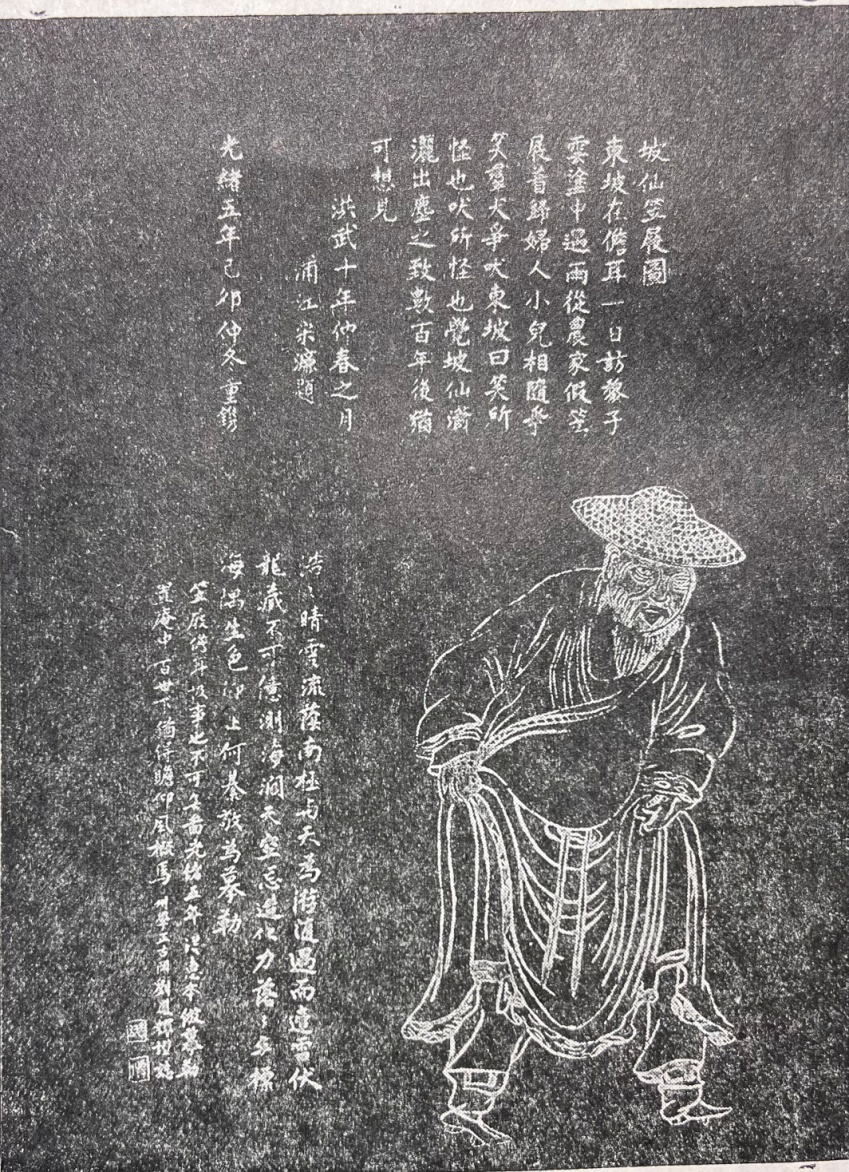 坡仙笠屐圖
東坡在儋耳一日訪黎子
雲塗中遇雨從農家假笠
屐着歸婦人小兒相隨爭
笑羣犬爭吠東坡曰笑所
怪也吠所怪也覺坡仙瀟
灑出塵之致數百年後猶
可想見
洪武十年仲春之月
浦江宋濂題
光緒五年己卯仲冬重鐫
浩〻晴雲流蔭南極與天為游道遇而達雷伏
龍藏不可億測海涧天空忘造化力落〻高標
海隅生色仰止何綦敬為摹勒
笠屐傳斗坡事也不可無畵光緒五年
庵中百世下猶得瞻仰風概焉